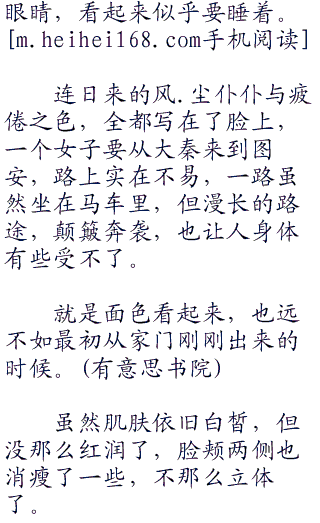 眼睛，看起来似乎要睡着。
[m.heihei168.com手机阅读]
连日来的风.尘仆仆与疲
倦之色，全都写在了脸上，
一个女子要从大秦来到图
安，路上实在不易，一路虽
然坐在马车里，但漫长的路
途，颠簸奔袭，也让人身体
有些受不了。
就是面色看起来，也远
不如最初从家门刚刚出来的
时候。(有意思书院)
虽然肌肤依旧白皙，但
没那么红润了，脸颊两侧也
消瘦了一些，不那么立体
了。